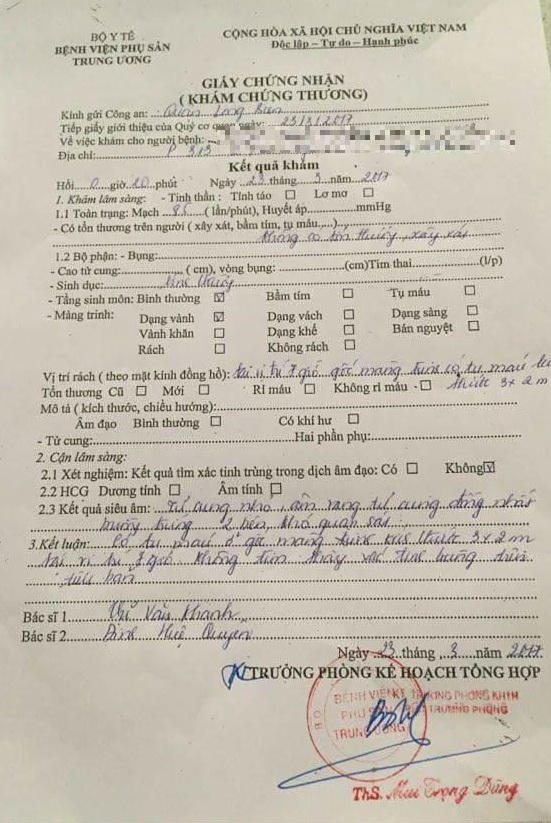 BỘ Y TẾ
BỆNH VIỆN PHỤ SẢN
TRUNG ƯƠNG
CỘNG HÒA XÃ HỘI CHỦ NGHĨA VIỆT NAM
Độc lập – Tự do – Hạnh phúc
GIẤY CHỨNG NHẬN
( KHÁM CHỨNG THƯƠNG)
Kính gửi Công an: Quận Long Biên
Tiếp giấy giới thiệu của Quý cơ quan ngày: 23/3/2017
Về việc khám cho người bệnh:
Địa chỉ: P 313
Kết quả khám
Hồi 0 giờ 20 phút Ngày 23 tháng 3 năm 2017
1. Khám lâm sàng: - Tinh thần: Tỉnh táo □ Lơ mơ □
1.1 Toàn trạng: Mạch 85 ( lần/phút), Huyết áp...............mmHg
- Có tổn thương trên người ( xây xát, bầm tím, tụ máu,...)
không có tổn thương, xây xát
1.2 Bộ phận: - Bụng:
- Cao tử cung:............... ( cm), vòng bụng: ...............(cm)Tim thai...............(l/p)
- Sinh dục: bình thường
- Tầng sinh môn: Bình thường ☑ Bầm tím □ Tụ máu □
- Màng trinh: Dạng vành ☑ Dạng vách □ Dạng sàng □
Vành khăn □ Dạng khế □ Bán nguyệt □
Rách □ Không rách □
Vị trí rách ( theo mặt kính đồng hồ): tại vị trí 7 giờ gốc màng trinh có tụ máu
thước 3x2 m
Tổn thương Cũ □ Mới □ Rỉ máu □ Không rỉ máu - □
Mô tả ( kích thước, chiều hướng):
Âm đạo Bình thường □ Có khí hư □
- Tử cung: Hai phần phụ:
2. Cận lâm sàng:
2.1 Xét nghiệm: Kết quả tìm xác tinh trùng trong dịch âm đạo: Có □ Không ☑
2.2 HCG Dương tính □ Âm tính □
2.3 Kết quả siêu âm: Tử cung nhỏ, âm vang tử cung đồng nhất
buồng trứng 2 bên khó quan sát
3.Kết luận: Có tụ máu ở gốc màng trinh kích thước 3x2 m
tại vị trí 7 giờ không tìm thấy xác tinh trùng trên
tiêu bản
Bác sĩ 1 Vũ Văn Khanh
Bác sĩ 2 Quyên
Ngày 23 tháng 3 năm 2017
TRƯỞNG PHÒNG KẾ HOẠCH TỔNG HỢP
BỆNH VIỆN
PHỤ SẢN
TRUNG ƯƠNG
KT TRƯỞNG PHÒNG KHTH
PHÓ TRƯỞNG PHÒNG
ThS. Mai Trọng Dũng